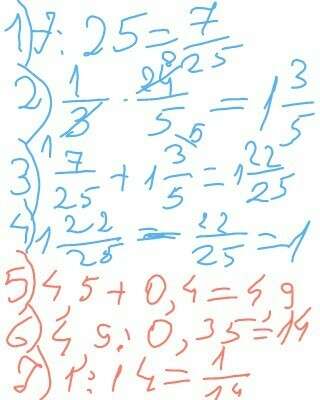 1) 7 : 25 = 7/25
2) 1/3 · 24/5 = 1 3/5
3) 7/25 + 1 3/5 = 1 22/25
4) 1 22/25 - 22/25 = 1
5) 4,5 + 0,4 = 4,9
6) 4,9 : 0,35 = 14
7) 1 : 14 = 1/14